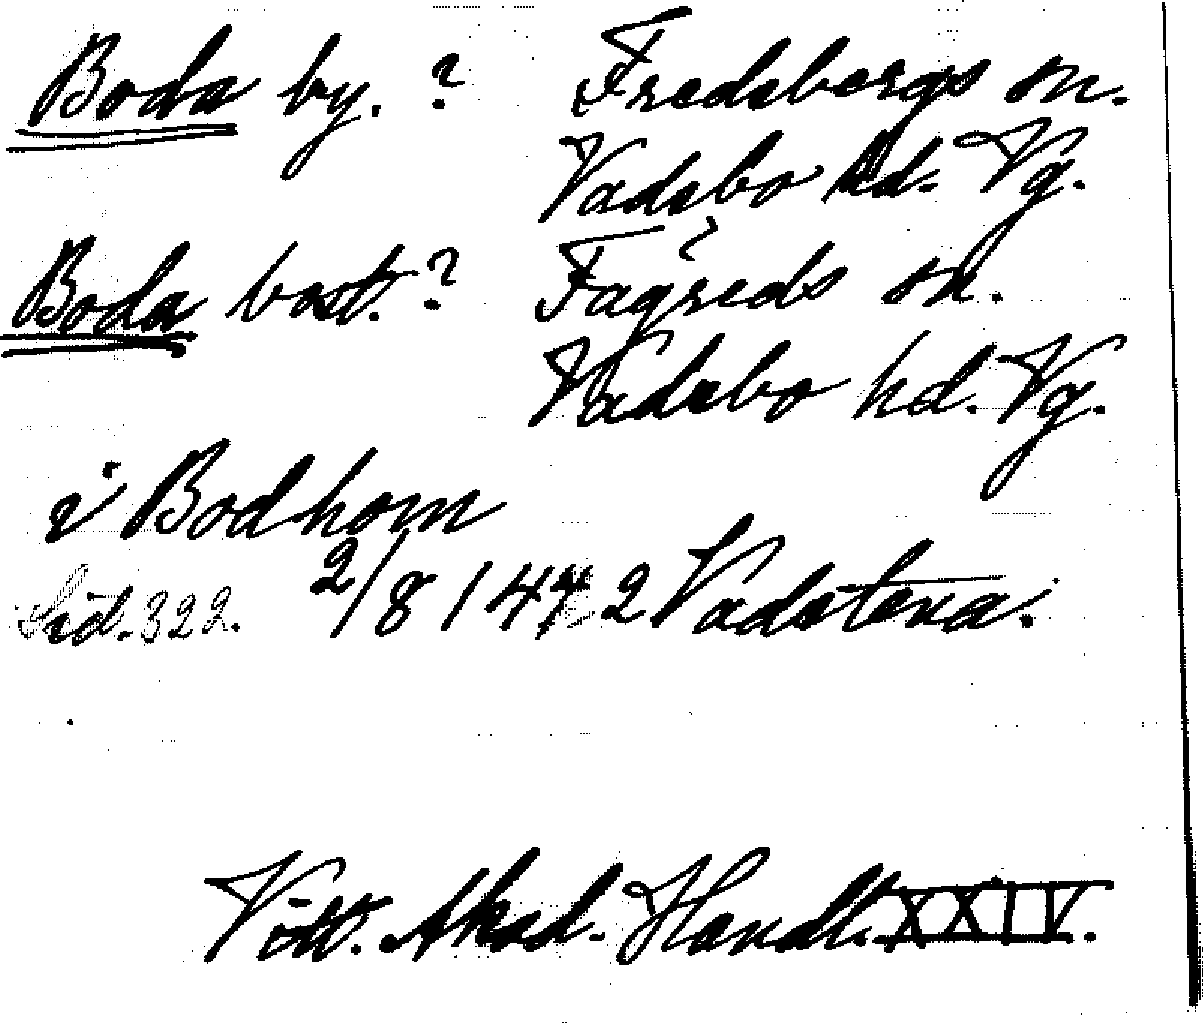 Boda by. ? Fredsbergs sn.
Vadsbo hd. Vg.
Boda bost. ? Fägreds sn.
Vadsbo hd. Vg.
i Bodhom
Sid. 322. 2/8 1472 Vadstena.
Vitt. Akad. Handl. XXIV.